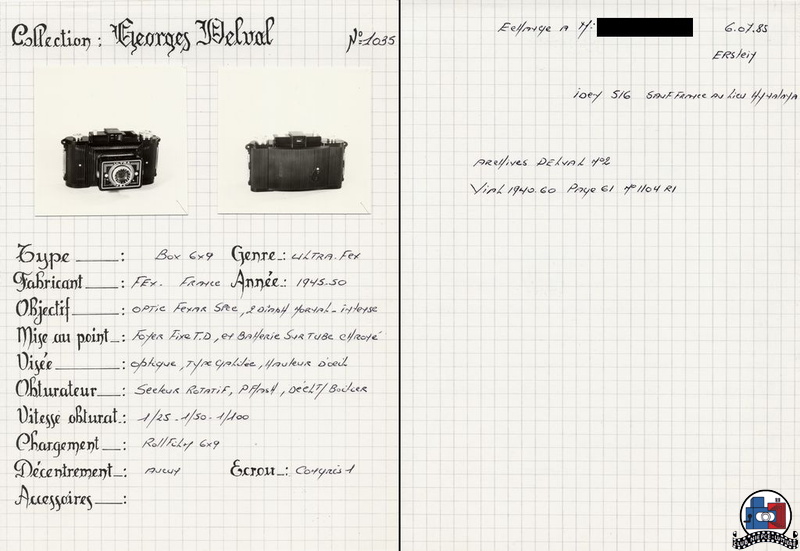 Collection : Georges Delval
N° 1035
ULTRA
Type : Box 6x9 Genre : ULTRA.Fex
Fabricant : FEx. France Année : 1945.50
Objectif : OPTIC FEXAR SPEC, 2 DIAPH NORMAL - intense
Mise au point : Foyer Fixe T.D, et Batterie Sur Tube chromé
Visée : optique, Type Galilée, Hauteur D'oeil
Obturateur : Secteur Rotatif, P.Flash, Déclt/Boitier
Vitesse obturat. : 1/25 . 1/50 - 1/100
Chargement : Rollfilm 6x9
Décentrement : Aucun Ecrou :
Accessoires :
Echange a Mr: 6.07.85
ERStein
idem 516 SAUF France au lieu
ARCHIVES DELVAL n°2
Vial 1940.60 Page 61 n° 1104 R1